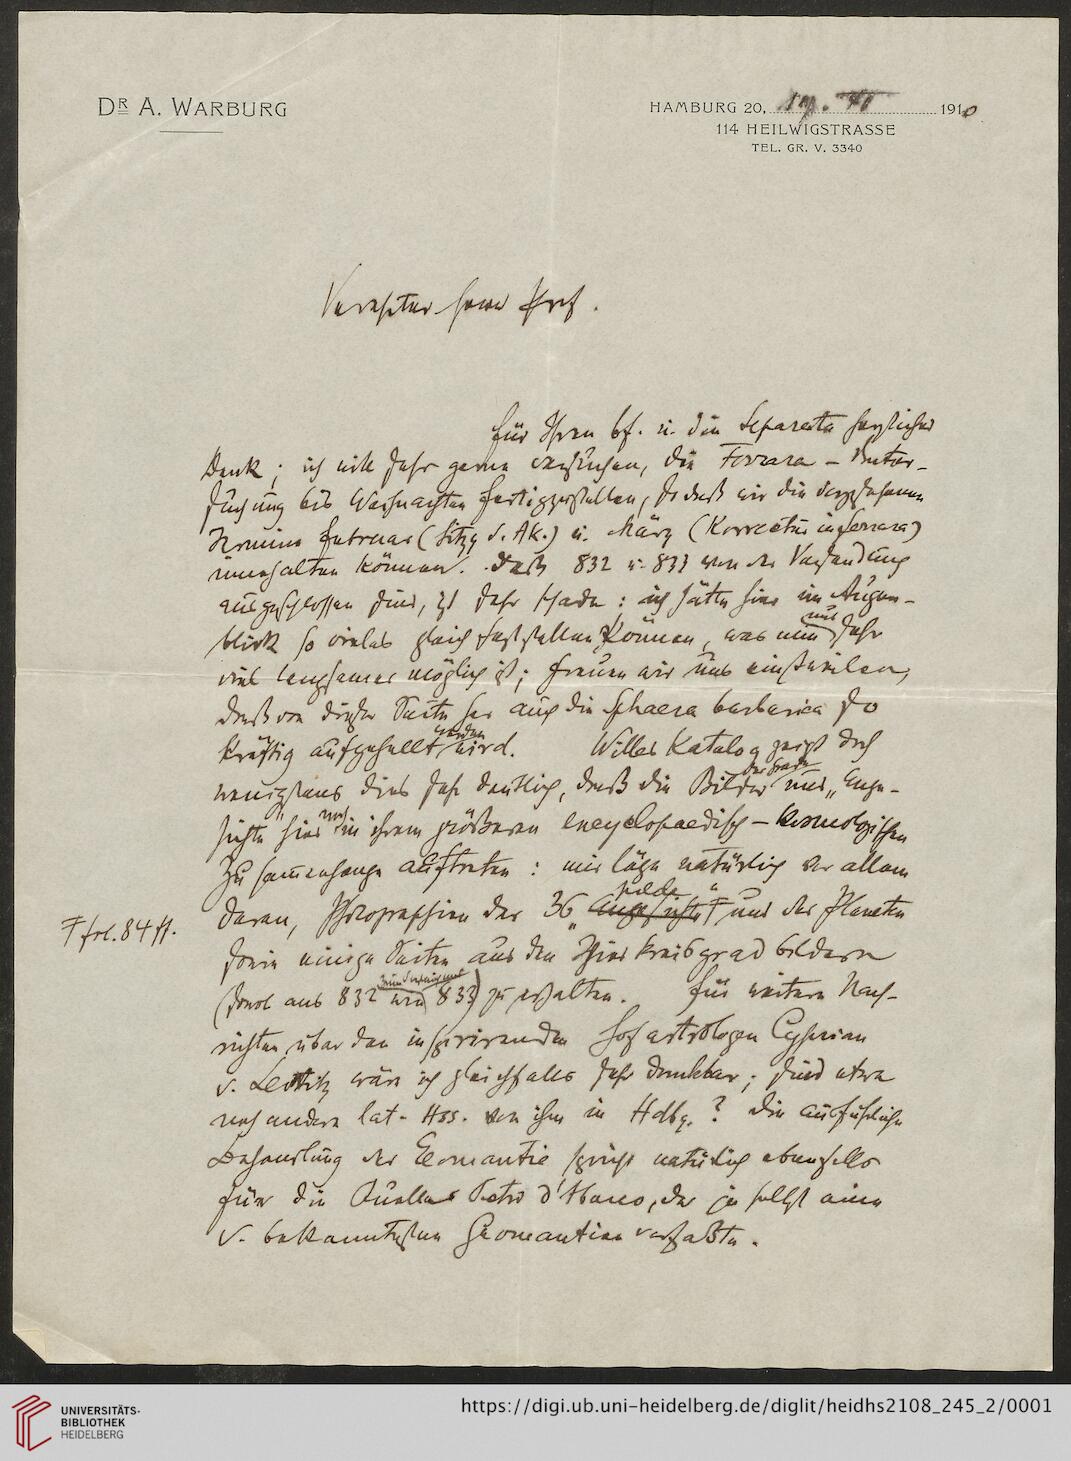 DR A. WARBURG
HAMBURG 20, 19. XI 1910
114 HEILWIGSTRASSE
TEL. GR. V. 3340
Verehrter Herr Prof.
für Ihren Bf. u. die Separata herzlichen
Dank; ich will sehr gerne versuchen, die Ferrara-Unter-
suchung bis Weihnachten fertigzustellen, so daß wir die vorgesehenen
Termine Februar (Sitzg d. Ak.) u. März (Korrectur in Ferrara)
innehalten können. Daß 832 u. 833 von der Versendung
ausgeschlossen sind, ist sehr schade: ich hätte hier im Augen-
blick so vieles gleich feststellen können, was nun nur sehr
viel langsamer möglich ist; freuen wir uns einstweilen,
daß von dieser Seite her auch die Sphaera barbarica so
kräftig aufgehellt werden wird. Willes Katalog zeigt doch
wenigstens dies sehr deutlich, daß die Bilder der Grade und „Ange-
sichte" hier noch in ihrem größeren encyclopaedisch-kosmologischen
Zusammenhange auftreten: mir läge natürlich vor allem
daran, Photographien der 36 „Angesichte" und der Planeten
Ŧ fol. 84 ff.
sowie einige Seiten aus den Thierkreisgradbildern
(sowol aus 832 wie 833) zu erhalten. Für weitere Nach-
richten über den inspirirenden Hofastrologen Cyprian
v. Leovitz wäre ich gleichfalls sehr dankbar; sind etwa
noch andere lat. Hss. von ihm in Hdbg.? Die ausführliche
Behandlung der Geomantie spricht natürlich ebenfalls
für die Quelle Pietro d'Abano, der ja selbst eine
d. bekanntesten Geomantien verfaßte.
UNIVERSITÄTS-
BIBLIOTHEK
HEIDELBERG
https://digi.ub.uni-heidelberg.de/diglit/heidhs2108_245_2/0001